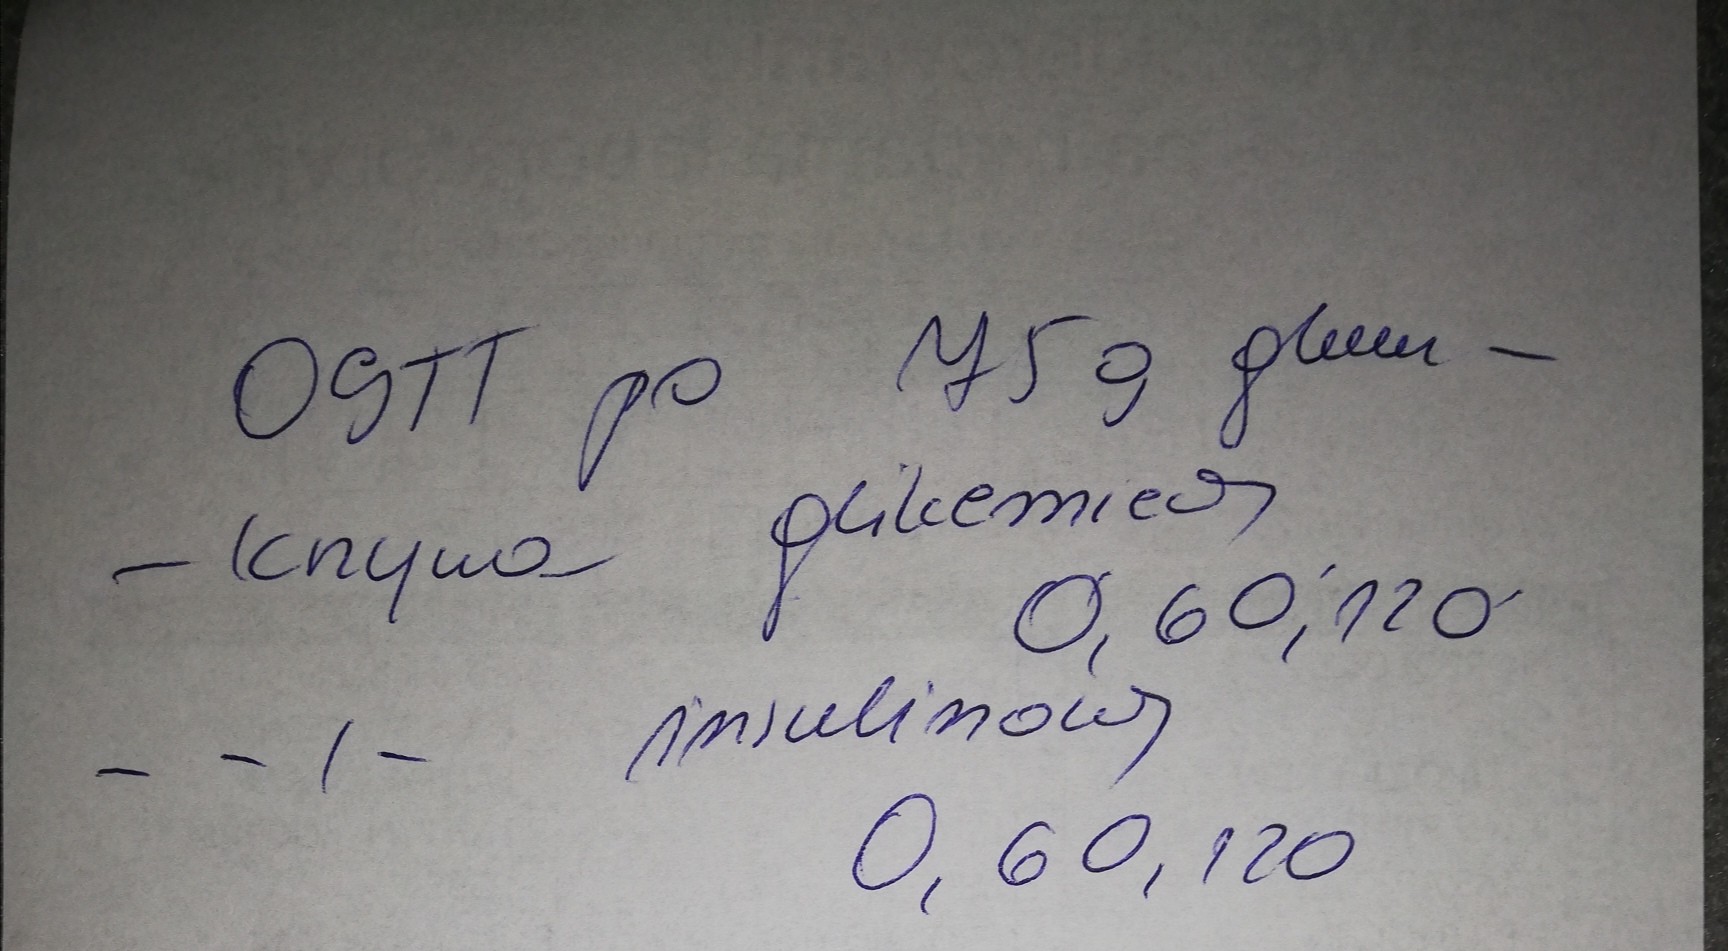 OGTT po 75 g gluk -
- krzywa glikemiczna
0', 60', 120'
- -/- insulinowa
0, 60, 120